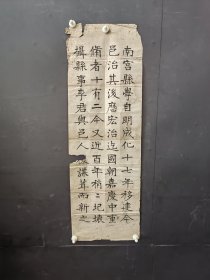 南宮縣學自明成化十七年移建今
邑治其後歷宏治迄國朝嘉慶中重
脩者十有二今又近百年稍稍圮壞
攝縣事李君與邑人謀葺而新之